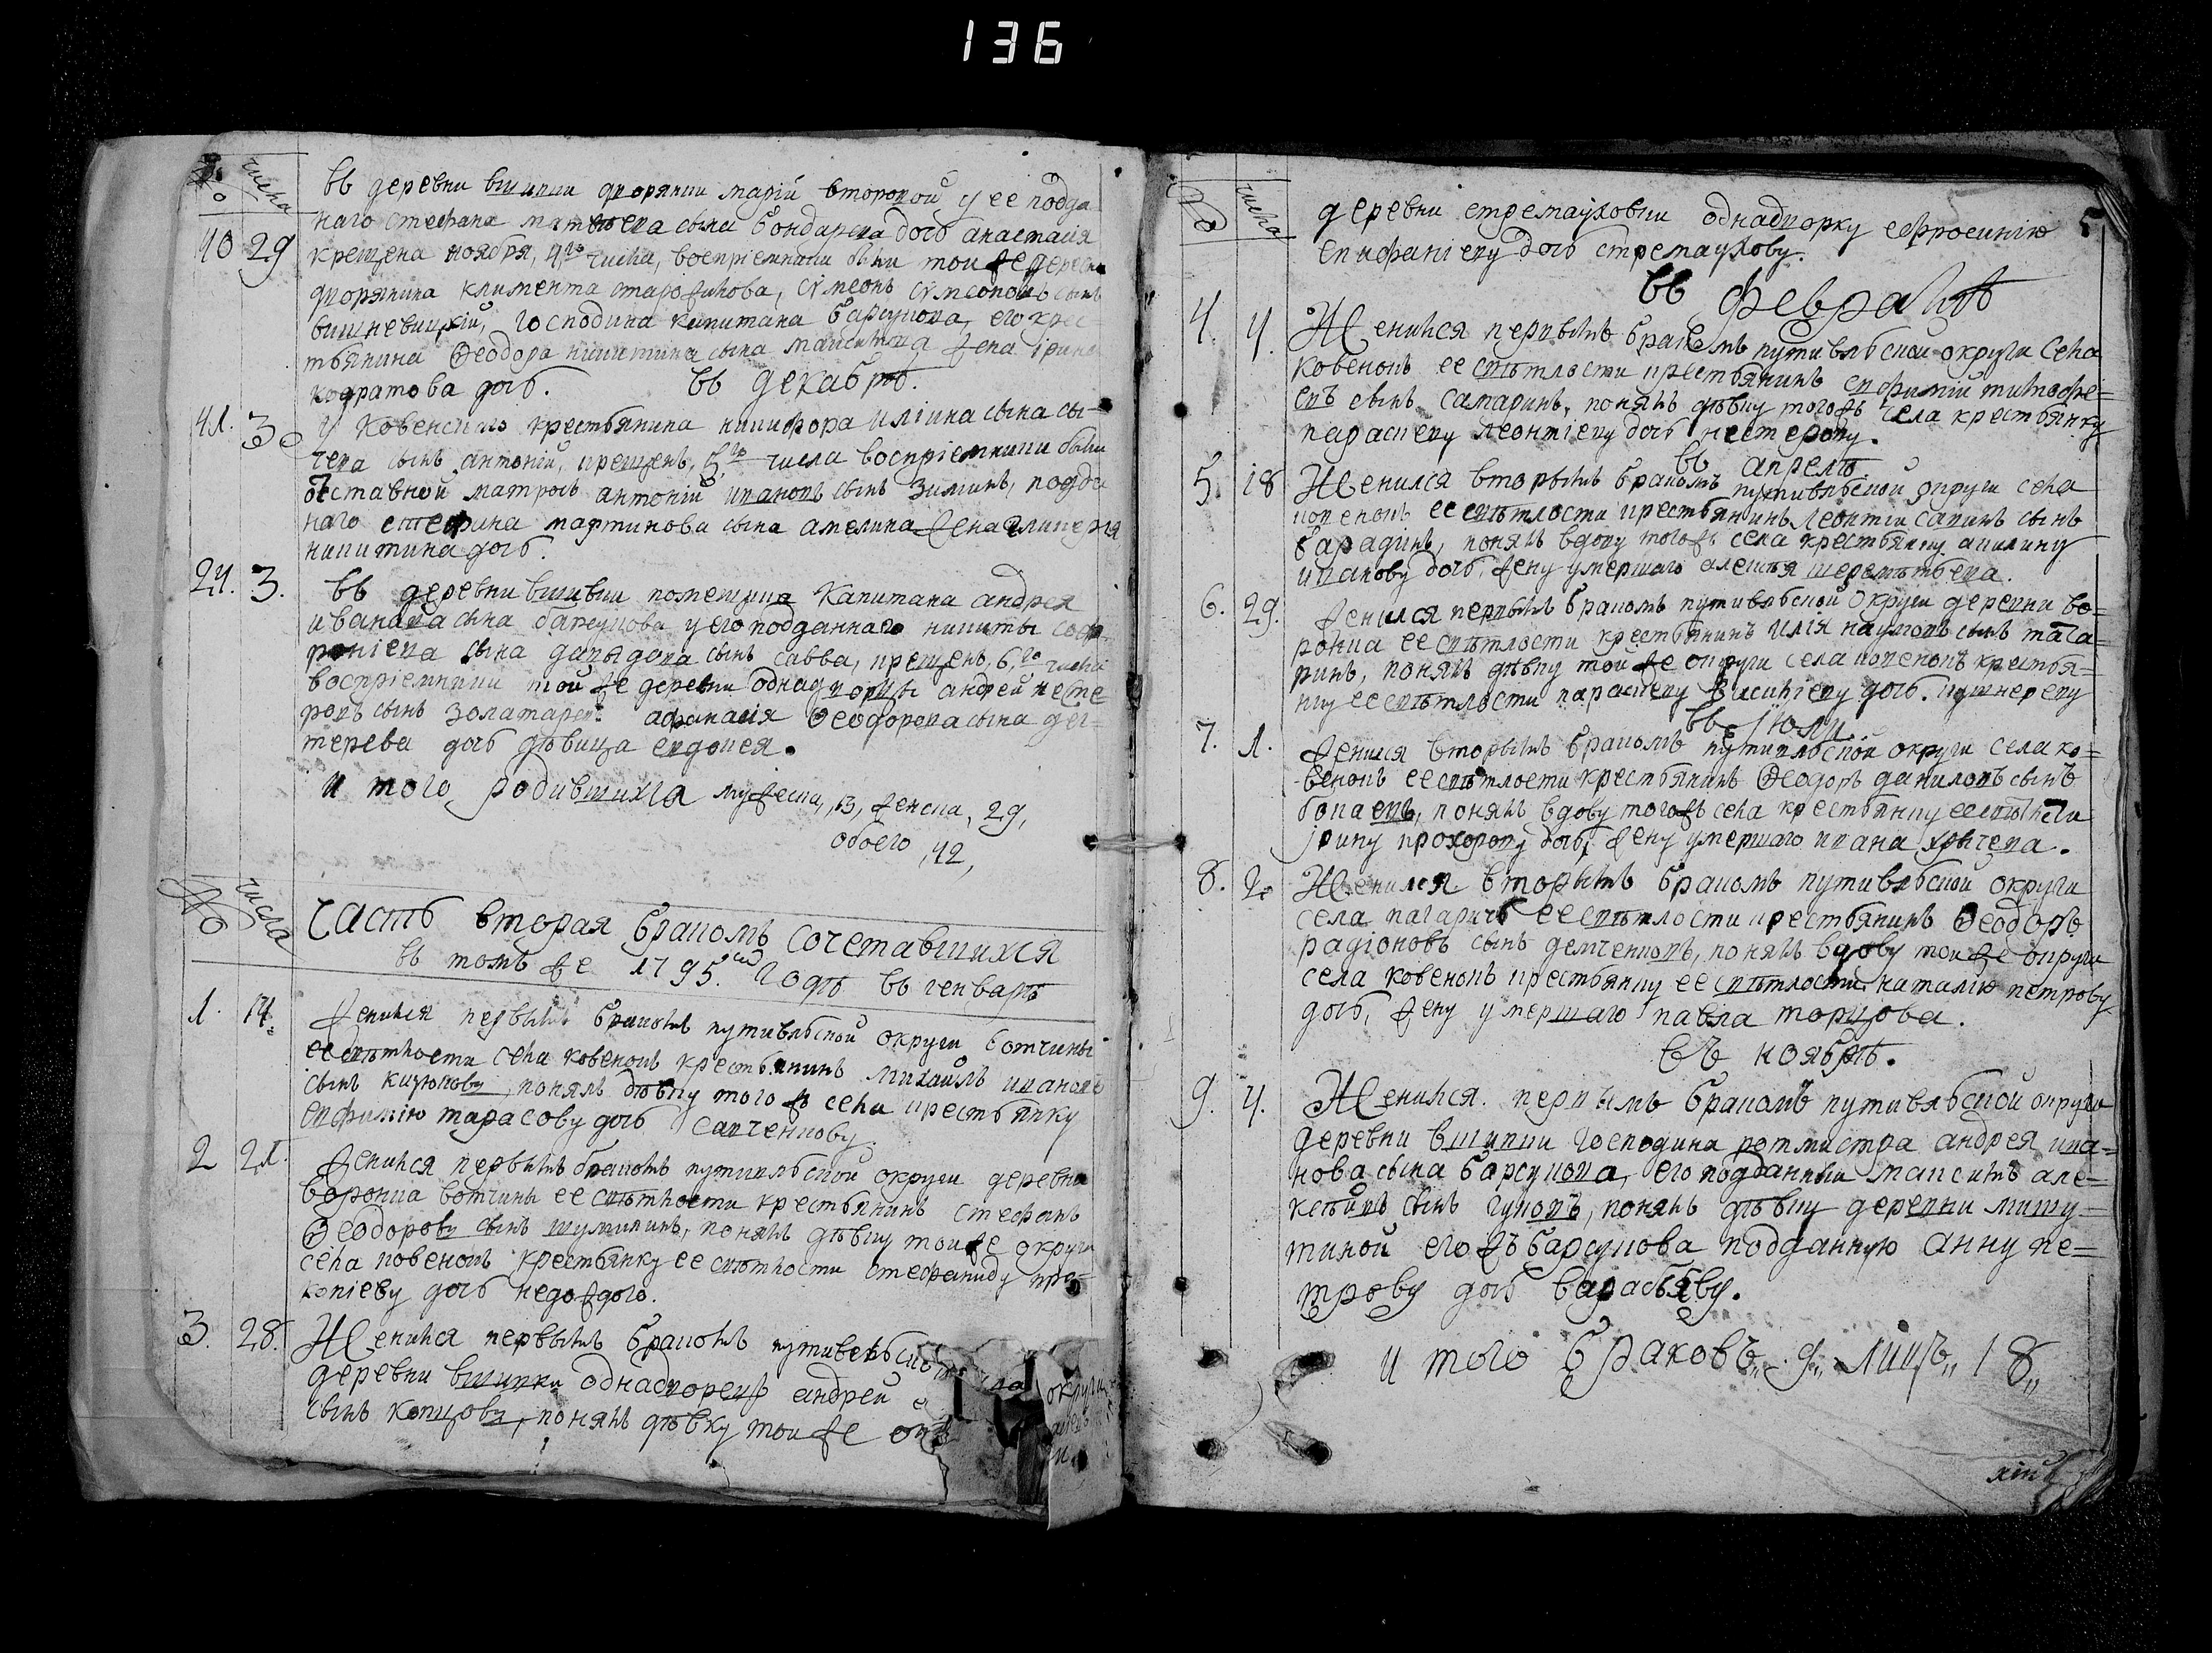 136
№ числа
въ деревни вшивки дворянки марiи второвой у ее подда
40 29 наго стефана матвѣева сына бондарева дочь анастасiя
крещена ноября, 4го числа, воспрiемники были той же деревни
дворянина климента старожикова, сѵмеонъ сѵмеоновъ сынъ
вишневицкiй, господина капитана барсукова, его крес
тьянина Ѳеодора никитина сына максимова жена iрина
кодратова дочь. въ декабрѣ.
41. 3 У Ковенскаго крестьянина никифора илiина сына сы-
чева сынъ антонiй, крещенъ, 5го числа воспрiемники были
отставной матросъ антонiй ивановъ сынъ зиминъ, подда
наго стефана мартинова сына амелина жена гликерiя
никитина дочь.
24. 3. въ деревни вшивки помещика Капитана андрея
иванова сына барсукова у его подданнаго никиты соф-
ронiева сына давыдова сынъ савва, крещенъ, 6,го числа
воспрiемники той же деревни однадворцы андрей несте
ровъ сынъ золатаревъ афанасiя Ѳеодорова сына дег-
терева дочь дѣвица евдокея.
и того родившихся мужеска, 13, женска, 29,
обоего, 42,
№ числа
Часть вторая бракомъ сочетавшихся
въ томъ же 1795. годѣ въ генварѣ
1. 14. Женился первымъ бракомъ путивльской округи вотчины
ее свѣтлости села ковенокъ крестьянинъ михаилъ ивановъ
сынъ кизюковъ, понялъ дѣвку того жъ села крестьянку
евфимiю тарасову дочь савченкову.
2 21. Женился первымъ бракомъ путивльской округи деревни
воронка вотчины ее свѣтлости крестьянинъ стефанъ
Ѳеодоровъ сынъ шумилинъ, понялъ дѣвку той же округи
села ковенокъ крестьянку ее свѣтлости стефаниду про-
копiеву дочь недождого.
3. 28. Женился первымъ бракомъ путивльской округи
деревни вшивки однадворецъ андрей
сынъ копцовъ, понялъ дѣвку той же
№ числа 5
деревни стремауховки однадворку ефросинiю
епифанiеву дочь стремаухову.
въ февралѣ
4. 4. Женился первымъ бракомъ путивльской округи села
ковенокъ ее свѣтлости крестьянинъ евфимiй тимофе=
евъ сынъ самаринъ, понялъ дѣвку того жъ села крестьянку
параскеву леонтiеву дочь нестерову.
въ апрелѣ.
5. 18 Женился вторымъ бракомъ путивльской округи села
ковенокъ ее свѣтлости крестьянинъ леонтiи савинъ сынъ
барадинъ, понялъ вдову того жъ села крестьянку акилину
иванову дочь, жену умершаго алексѣя шереметьева.
6. 29. Женился первымъ бракомъ путивльской округи деревни во=
ронка ее свѣтлости крестьянинъ илiя наумовъ сынъ тага=
ринъ, понялъ дѣвку той же округи села ковенокъ крестья=
нку ее свѣтлости параскеву василiеву дочь. кушнереву
въ Iюли.
7. 1. Женился вторымъ бракомъ путивльской округи села ко=
венокъ ее свѣтлости крестьянинъ Ѳеодоръ даниловъ сынъ
бокаевъ, понялъ вдову того жъ села крестьянку ее свѣтлости
iрину прохорову дочь, жену умершаго ивана хричева.
8. 2. Женился вторымъ бракомъ путивльской округи
села пагаричъ ее свѣтлости крестьянинъ Ѳеодоръ
радiоновъ сынъ демченковъ, понялъ вдову той же округи
села ковенокъ крестьянку ее свѣтлости наталiю петрову
дочь, жену умершаго павла торцова.
въ ноябрѣ.
9. 4. Женился первымъ бракомъ путивльской округи
деревни вшивки господина ротмистра андрея ива=
нова сына барсукова, его подданный максимъ але=
ксѣивъ сынъ гуковъ, понялъ дѣвку деревни мишу-
тиной его жъ барсукова подданную анну пе=
трову дочь варабьяву.
и того браковъ „9„ лицъ „18„